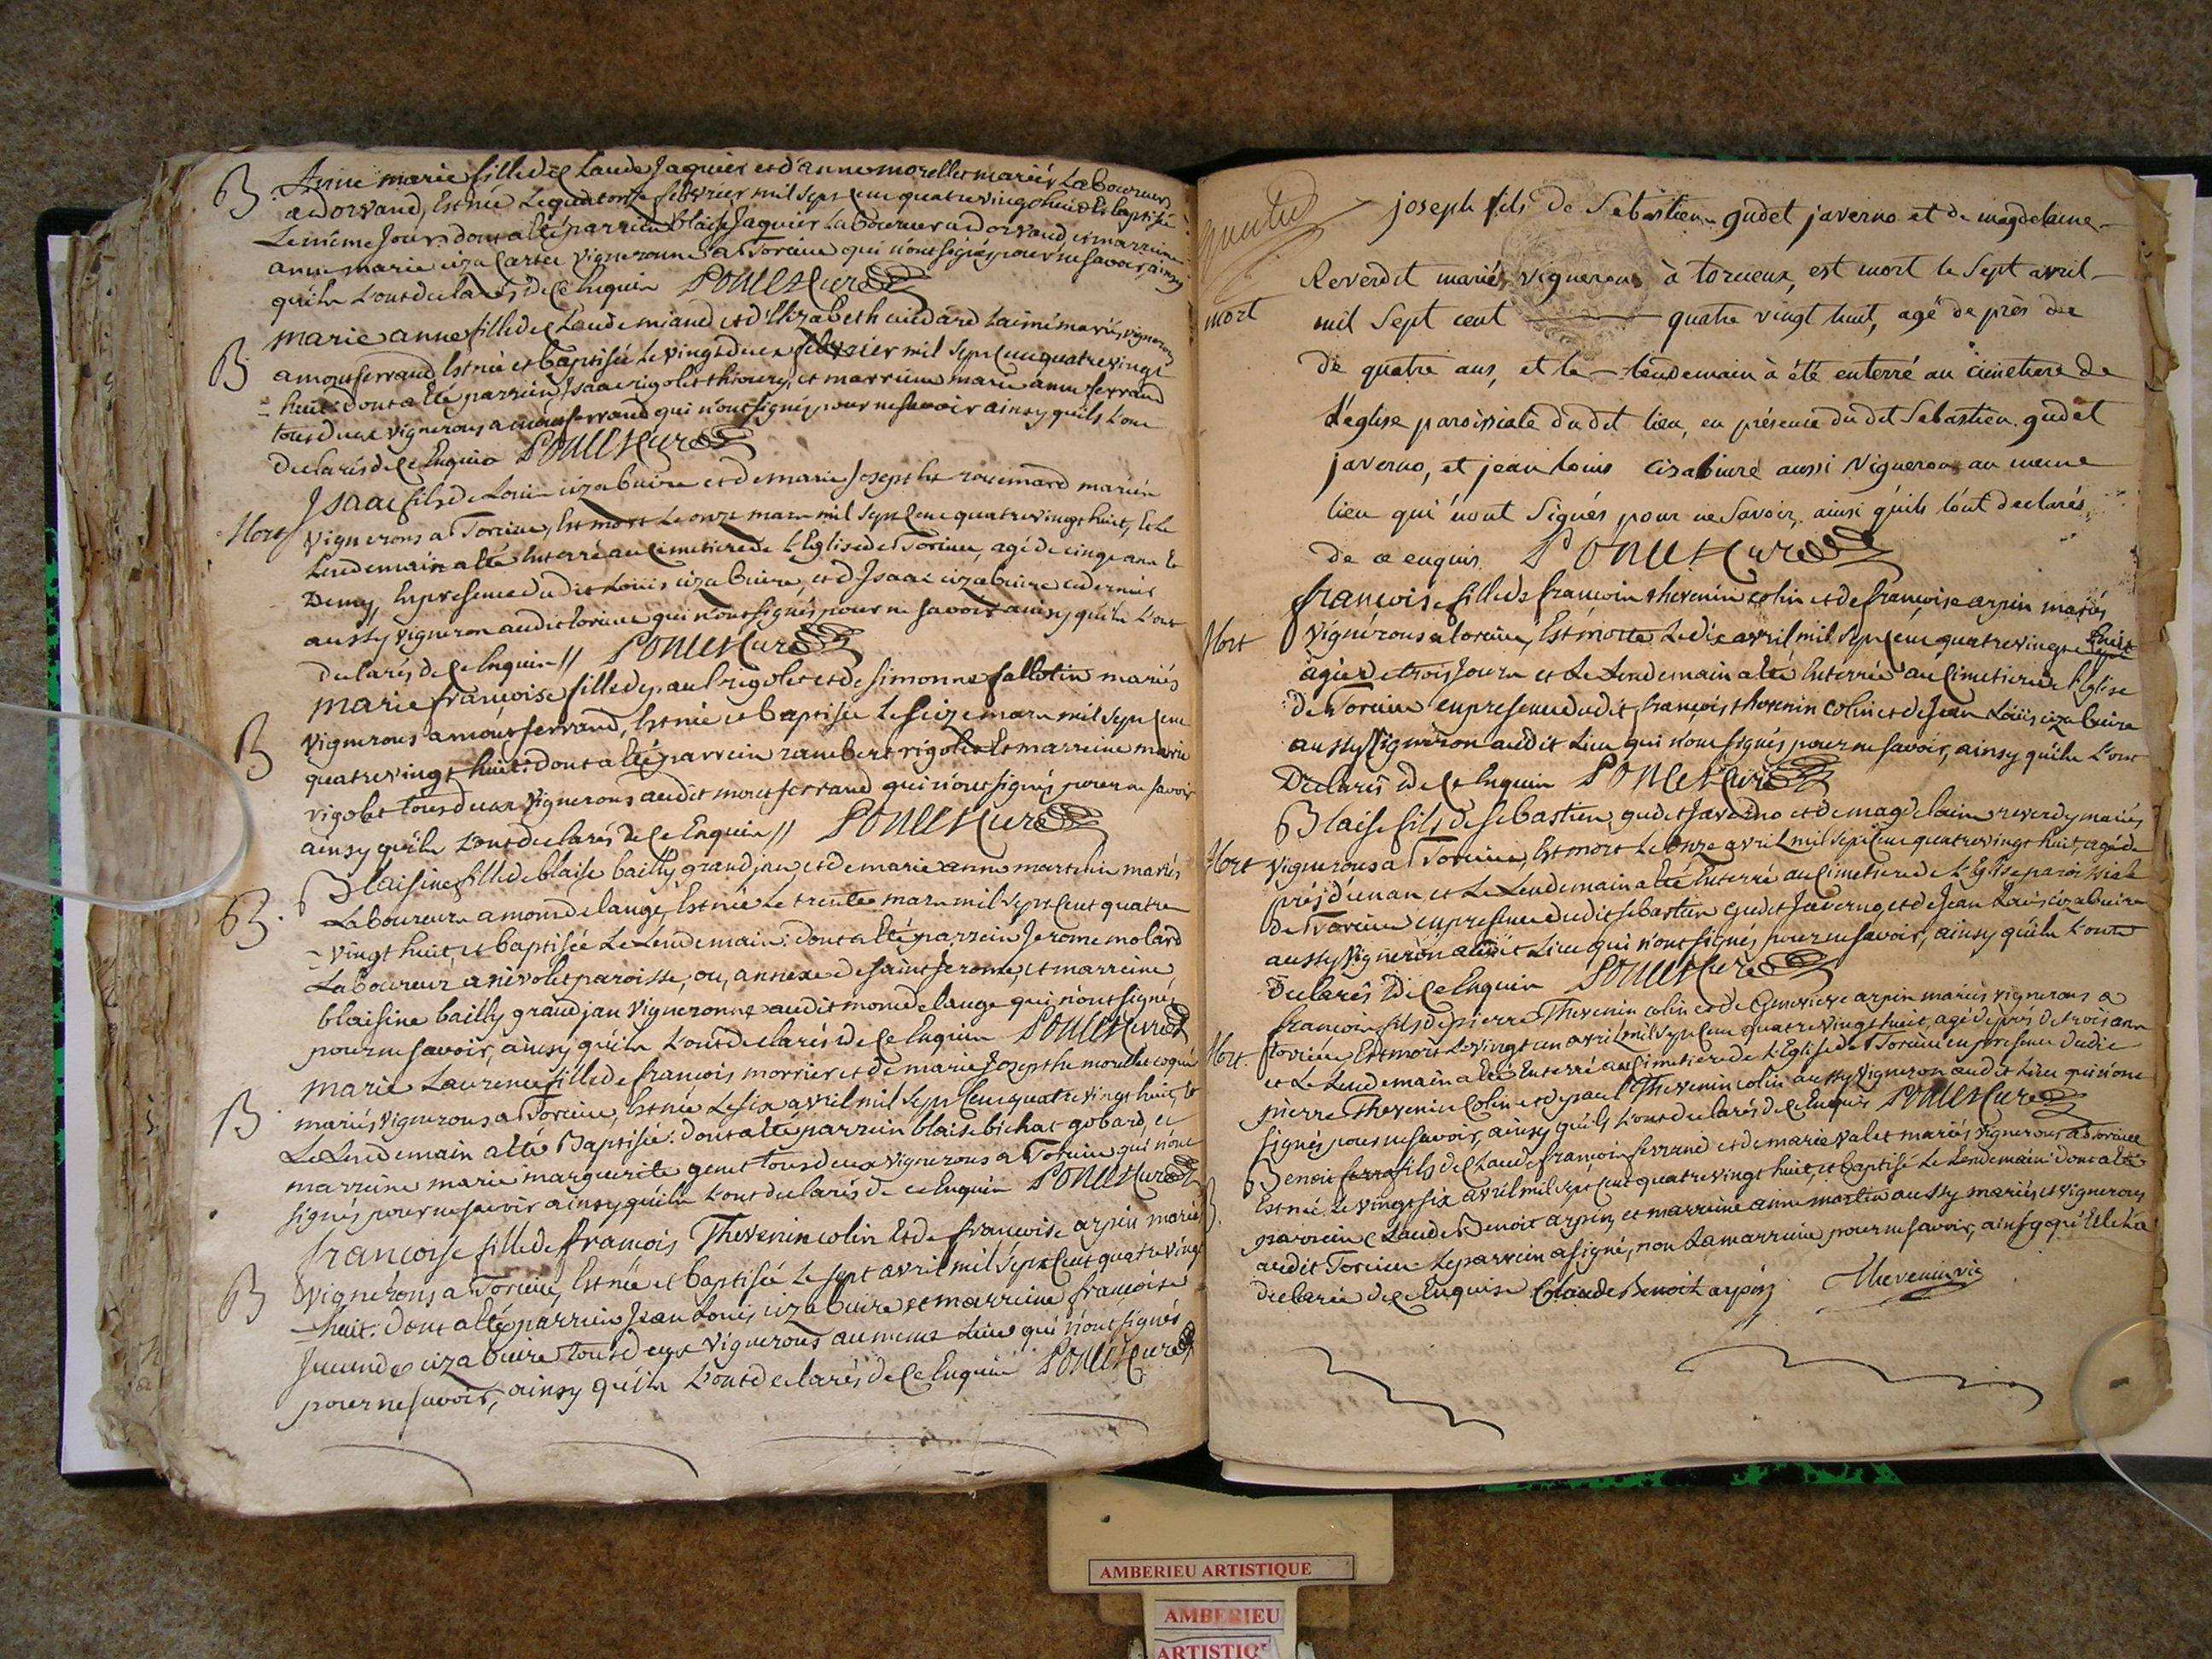 B. Anne marie fille de Claude Jaquier et d'anne morellet mariés Laboureurs
a dorvand, Est née Le quatorze febvrier mil sept Cent quatre vingt huit et baptisée
Le même Jour: dont a été parrein Blaise Jaquier Laboureur a dorvand, et marreine
anne marie vigneronne a Torcieu qui n'ont signés pour ne savoir, ainsy
qu'ils L'ont declarés de Ce Enquis PONCET Curé
marie anne fille de Claude miand et d'Elizabeth cuidard Laîné mariés, vignerons
B a montferrand Est née et baptisée Le vingt deux febvrier mil sept Cent quatre vingt
= huit: dont a été parrein, Isaac rigolet thioury, et marreine marie anne ferrand
tous deux vignerons a montferrand qui n'ont signés pour ne savoir ainsy qu'ils L'ont
declarés de Ce Enquis PONCET Curé
Isaac fils de Louis cizabuire et de marie Josephte rouemard mariés
Mort vignerons a Torcieu, Est mort Le onze mars mil sept Cent quatre vingt huit, Et Le
Lendemain a été Enterré au Cimetiere de L'Eglise de Torcieu, agé de cinq ans Et
Demy, En presence dudit Louis cizabuire, et d'Isaac cizabuire ce dernier
aussy vigneron audit torcieu qui n'ont signés pour ne savoir ainsy qu'ils L'ont
declarés de Ce Enquis // PONCET Curé
marie françoise fille de paul rigolet et de simonne fallotin mariés
B vignerons a montferrand, Est née et baptisée Le seize mars mil sept Cent
quatre vingt huit: dont a été parrein rambert rigolet Et marreine marie
rigolet tous deux vignerons audit montferrand qui n'ont signés pour ne savoir
ainsy qu'ils L'ont declarés de Ce Enquis // PONCET Curé
B. Blaisine fille de blaise bailly grand jan, et de marie anne martelin mariés
Laboureurs a mont de lange, Est née Le trente mars mil sept Cent quatre
= vingt huit, et baptisée Le Lendemain: dont a été parrein Jerome molard
Laboureur a nivolet paroisse, ou, annexe de saint Jerome, et marreine
blaisine bailly grand jan vigneronne audit mont de lange qui n'ont signés
pour ne savoir, ainsy qu'ils L'ont declarés de Ce Enquis PONCET Curé
marie Laurence fille de françois morrier et de marie Josephte morellet coqué
B mariés vignerons a Torcieu, Est née Le six avril mil sept Cent quatre vingt huit, Et
Le Lendemain a été Baptisée: dont a été parrein blaise bichat gobard, et
marreine marie marguerite genet tous deux vignerons a Torcieu qui n'ont
signés pour ne savoir ainsy qu'ils L'ont declarés de Ce Enquis PONCET Curé
françoise fille de françois Thevenin colin Et de françoise arpin mariés
B vignerons a Torcieu, Est née et baptisée Le sept avril mil sept Cent quatre vingt
= huit: dont a été parrein Jean Louis cizabuire et marreine françoise
cizabuire tous deux vignerons au meme Lieu qui n'ont signés
pour ne savoir, ainsy qu'ils L'ont declarés de Ce Enquis PONCET Curé
joseph fils de Sebastien gudet javerno et de magdelaine
Reverdit mariés vignerons à torcieux, est mort le Sept avril
mort mil Sept cent quatre vingt huit, agé de près de
de quatre ans, et le lendemain à été enterré au cimetiere de
l'eglise paroissiale du dit lieu, en présence du dit Sebastien gudet
javerno, et jean louis cisabiure aussi vigneron au meme
lieu qui n'ont Signés pour ne Savoir, ainsi qu'ils l'ont declarés,
de ce enquis. PONCET Curé
françoise fille de françois thevenin colin et de françoise arpin mariés
Mort vignerons a torcieu, Est morte Le dix avril mil sept Cent quatre vingt huit
âgée de trois Jours et Le Lendemain a été Enterrée au Cimetiere de l'Eglise
de Torcieu en presence dudit françois thevenin colin et de Jean Louis cizabuire
aussy vigneron audit Lieu qui n'ont signés pour ne savoir, ainsy qu'ils L'ont
Declarés de Ce Enquis PONCET Curé
Blaise fils de sebastien gudet Javerno et de magdelaine reverdy mariés
Mort vignerons a Torcieu, Est mort Le onze avril mil sept Cent quatre vingt huit, agé de
près d'un an, et Le Lendemain a été Enterré au Cimetiere de L'Eglise paroissiale
de Torcieu en presence dudit sebastien Gudet Javerno, et de Jean Louis cizabuire
aussy Vigneron audit Lieu qui n'ont signés pour ne savoir, ainsy qu'ils L'ont
declarés de Ce Enquis PONCET Curé
françois fils de pierre Thevenin colin et de Genevieve arpin mariés vignerons a
Mort. torcieu Est mort Le vingt un avril mil sept Cent quatre vingt huit, agé de près de trois ans
et Le Lendemain a été Enterré au Cimetiere de L'Eglise de Torcieu en presence dudit
pierre Thevenin Colin et de paul Thevenin colin aussy Vigneron audit Lieu qui n'ont
signés pour ne savoir, ainsy qu'ils L'ont declarés de Ce Enquis PONCET Curé
Benoit fils de Claude françois ferrand et de marie valet mariés vignerons a Torcieu
B. Est né Le vingt six avril mil sept Cent quatre vingt huit, et baptisé Le Lendemain: dont a été
parrein Claude Benoit arpin, et marreine anne martin aussy mariés et vignerons
audit Torcieu Le parrein a signé, non La marreine pour ne savoir, ainsy qu'Elle L'a
declarée de Ce Enquise Claude Benoit arpin Thevenin vic
AMBERIEU ARTISTIQUE
AMBERIEU
ARTISTIQ